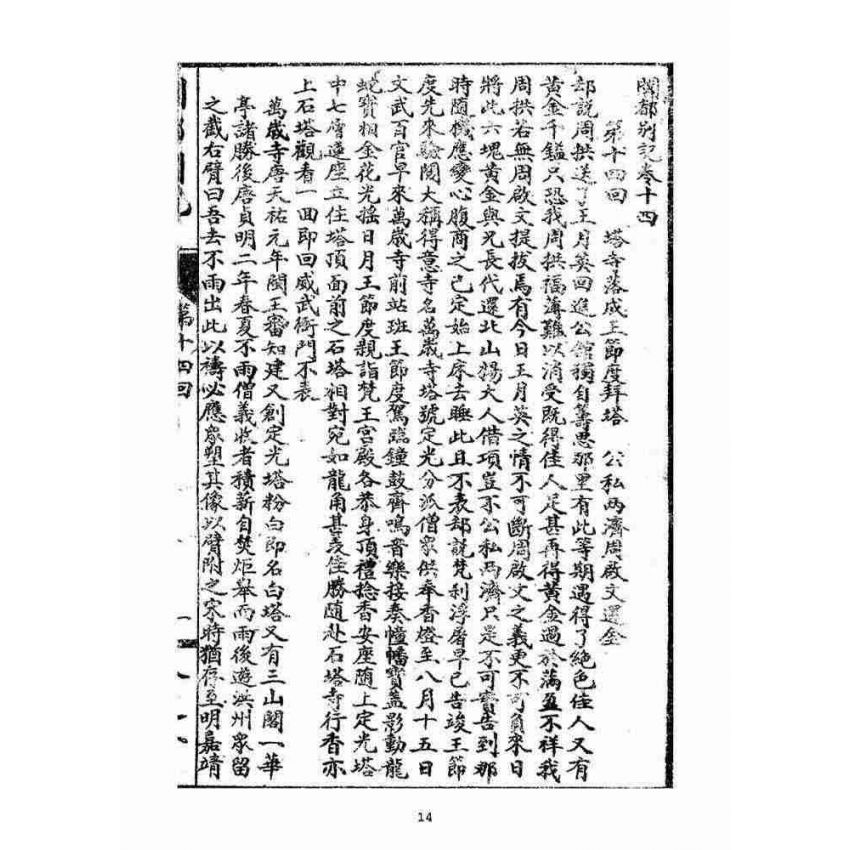 閩都別記卷十四
第十四回　塔寺落成王節度拜塔　公私兩濟周啟文還金
却說周拱送了王月英回進公館獨自籌思那里有此等期遇得了絕色佳人又有
黃金千鎰只恐我周拱福薄難以消受既得佳人足甚再得黃金過於滿盈不祥我
周拱若無周啟文提拔焉有今日王月英之情不可斷周啟文之義更不可負來日
將此六塊黃金與兄長代還北山楊大人借項豈不公私兩濟只是不可實告到那
時隨機應變心腹商之已定始上床去睡此且不表却說梵刹浮屠早已告竣王節
度先來驗閱大稱得意寺名萬歲寺塔號定光分派僧眾供奉香燈至八月十五日
文武百官早來萬歲寺前站班王節度駕臨鐘鼓齊鳴音樂接奏幢幡寶蓋影動龍
蛇寶相金花光搖日月王節度親詣梵王宮殿各恭身頂禮捻香安座隨上定光塔
中七層蓮座立住塔頂面前之石塔相對宛如龍角甚羨佳勝隨赴石塔寺行香亦
上石塔觀看一回即回威武衙門不表
萬歲寺唐天祐元年閩王審知建又創定光塔粉白即名白塔又有三山閣一華
亭諸勝後唐貞明二年春夏不雨僧義收者積薪自焚炬舉而雨後遊洪州眾留
之截右臂曰吾去不雨出此以禱必應眾塑其像以臂附之宋時猶存至明嘉靖
第十四回
14